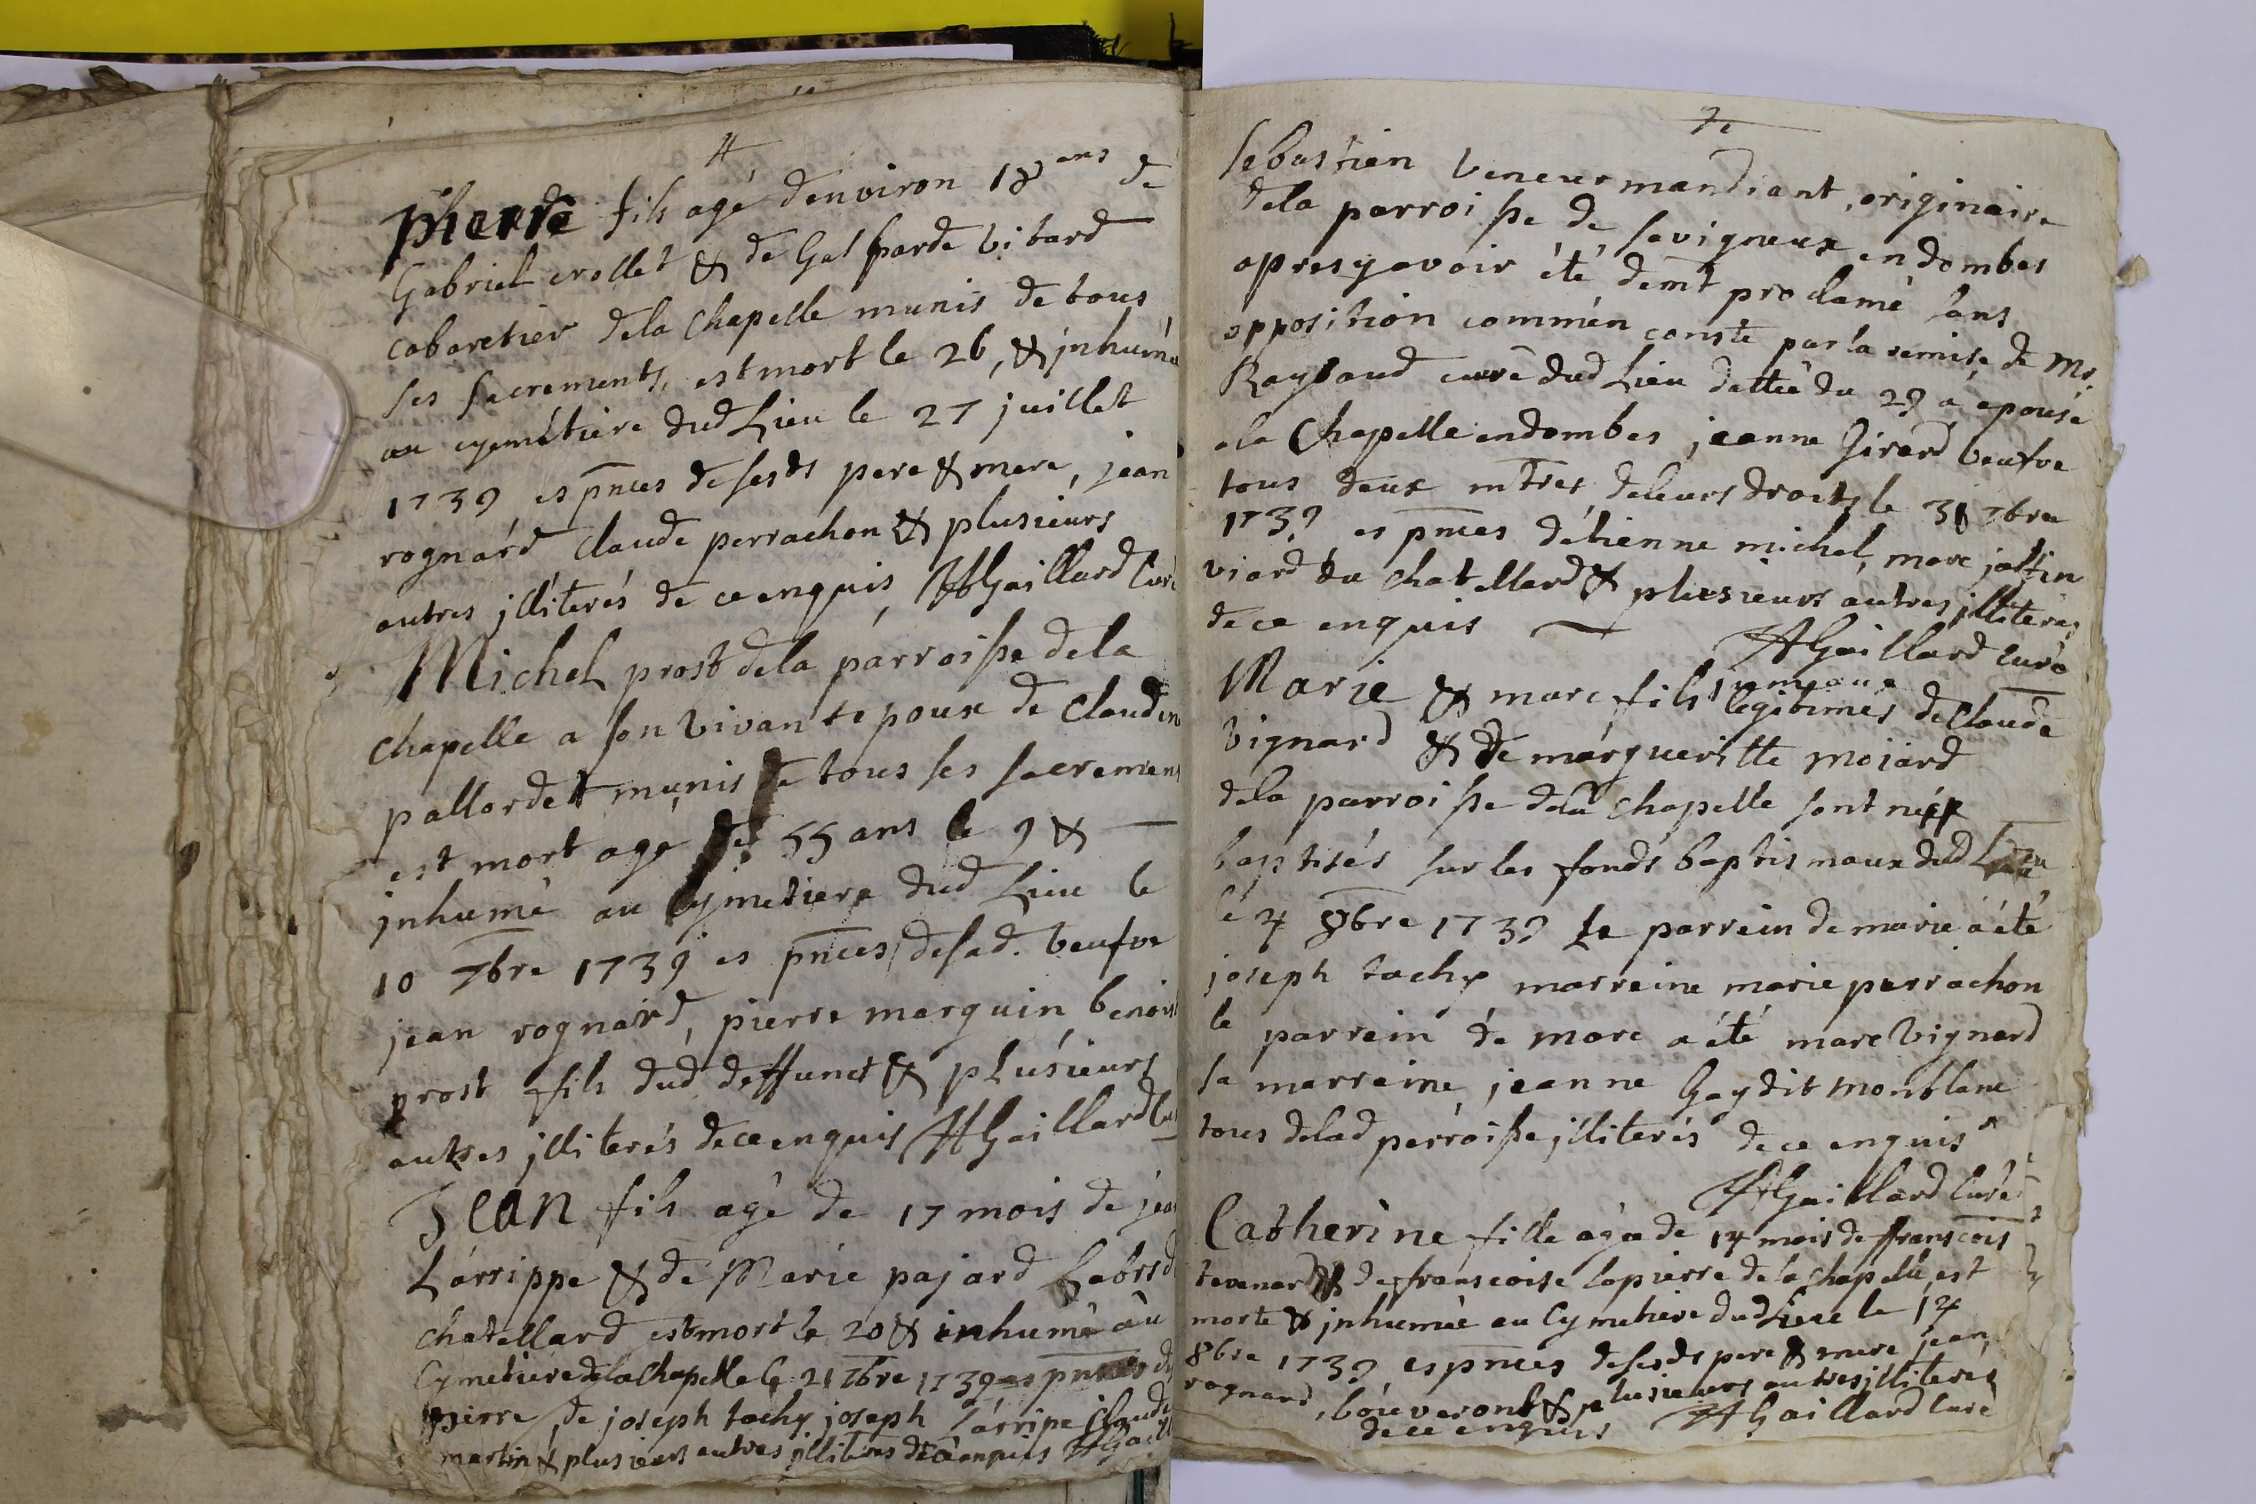 4
Pierre fils agé denviron 18 ans de
Gabriel crollet & de Gasparde vitard
cabaretier dela chapelle munis de tous
ses sacrements, est mort le 26, & jnhumé
au cyemétiere dud Lieu le 27 juillet
1739 es pnces de sesds pere & mere, jean
rognard claude perrachon & plusieurs
autres jlliterés de ce enquis, AGaillard Curé
Michel prost dela parroisse dela
chapelle a son vivant epoux de Claudine
pallordet munis de tous ses sacremens
est mort agé de 55 ans le 9 &
jnhumé au cymetiere dud Lieu le
10 7bre 1739 es pnces de sad. veufve
jean rognard, pierre marguin benoist
prost fils dud deffunct & plusieurs
autres jlliterés de ce enquis AGaillard Curé
Jean fils agé de 17 mois de jean
Lárrippe & de Marie pajard
chatellard est mort le 20 & inhumé au
Cymetiere dela Chapelle le 21 7bre 1739 es pnces de
pierre, de joseph tachy joseph Lárripe Claude
martin & plusieurs autres jlliterés de ce enquis AGaill
Sebastien veneur mandiant, originaire
dela parroisse de savigneux en dombes
apres y avoir été demt proclamé sans
opposition comm'en conste par la remise de Mr.
Raynaud curé dud Lieu dattée du 29 a épousé
a la Chapelle en dombes jeanne Girard veufve
tous deux mtres de leurs droits le 31 7bre
1739 es pnces d'étienne michel, marc jostin
viard du chatellard & plusieurs autres jlliterés
de ce enquis
AGaillard Curé
jumeaux
Marie & marc fils legitimes de Claude
vignard & de márgueritte mojard
dela parroisse dela chapelle sont nés &
baptisés sur les fonds baptismaux dud Lieu
le 4 8bre 1739 Le parrein de marie a été
joseph tachy marreine marie perrachon
le parrein de marc a été marc vignard
sa marreine jeanne Gay dit monblanc
tous de lad parroisse jlliterés de ce enquis
AGaillard Curé
Catherine fille agée de 14 mois de franscois
tevenard & de franscoise lapierre de la chapelle, est
morte & jnhumée au Cymetiere dud Lieu le 14
8bre 1739 es pnces de sesds pere & mere jean
rognard, bouveront & plusieurs autres jlliterés
de ce enquis AGaillard Curé